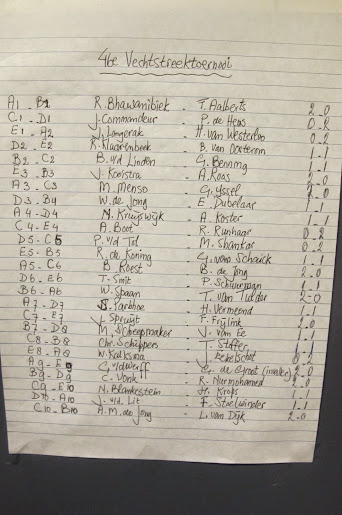 46e Vechtstreektoernooi
A1 - B1 R. Bhawanibiek - T. Aalberts 2-0
C1 - D1 J. Commandeur - P. de Heus 0-2
E1 - A2 J. Langerak - H. van Westerloo 0-2
D2 - E2 R. Klaarenbeek - B. van Oosterom 1-1
B2 - C2 B. v/d Linden - G. Benning 1-1
E3 - B3 J. Kooistra - A. Kaas
A3 - C3 M. Menso - G. Yssel 2-0
D3 - B4 W. de Jong - E. Dubelaar
A4 - D4 N. Kruyswyk - A. Koster 1-1
C4 - E4 A. Boot - R. Rijnhaar 0-2
D5 - C5 P. v/d Tol - M. Shankar 0-2
E5 - B5 R. de Koning - G. van Schaick 1-1
A5 - C6 B. Roest - B. de Jong 2-0
D6 - E6 T. Smit - P. Schuurman 1-1
B6 - A6 W. Spaan - T. van Tulder 2-0
A7 - D7 Parohoe - H. Vermeend 1-1
C7 - E7 J. Spruijt - F. Frylink
B7 - D8 M. Scheepmaker - J. van Ee
C8 - B8 Chr. Schippers - J. Staffer
E8 - A8 W. Kalksma - J. Bekelschot
A9 - G. v/d Werff - de Groot (invaller) 2-0
B9 - D9 C. Vonk - R. Niermohamed 2-0
C9 - E10 N. Blankestein - H. Krops 1-1
D10 - A10 J. v/d Lit - F. Stoelwinder 1-1
C10 - B10 A.M. de Jong - L. van Dijk 2-0